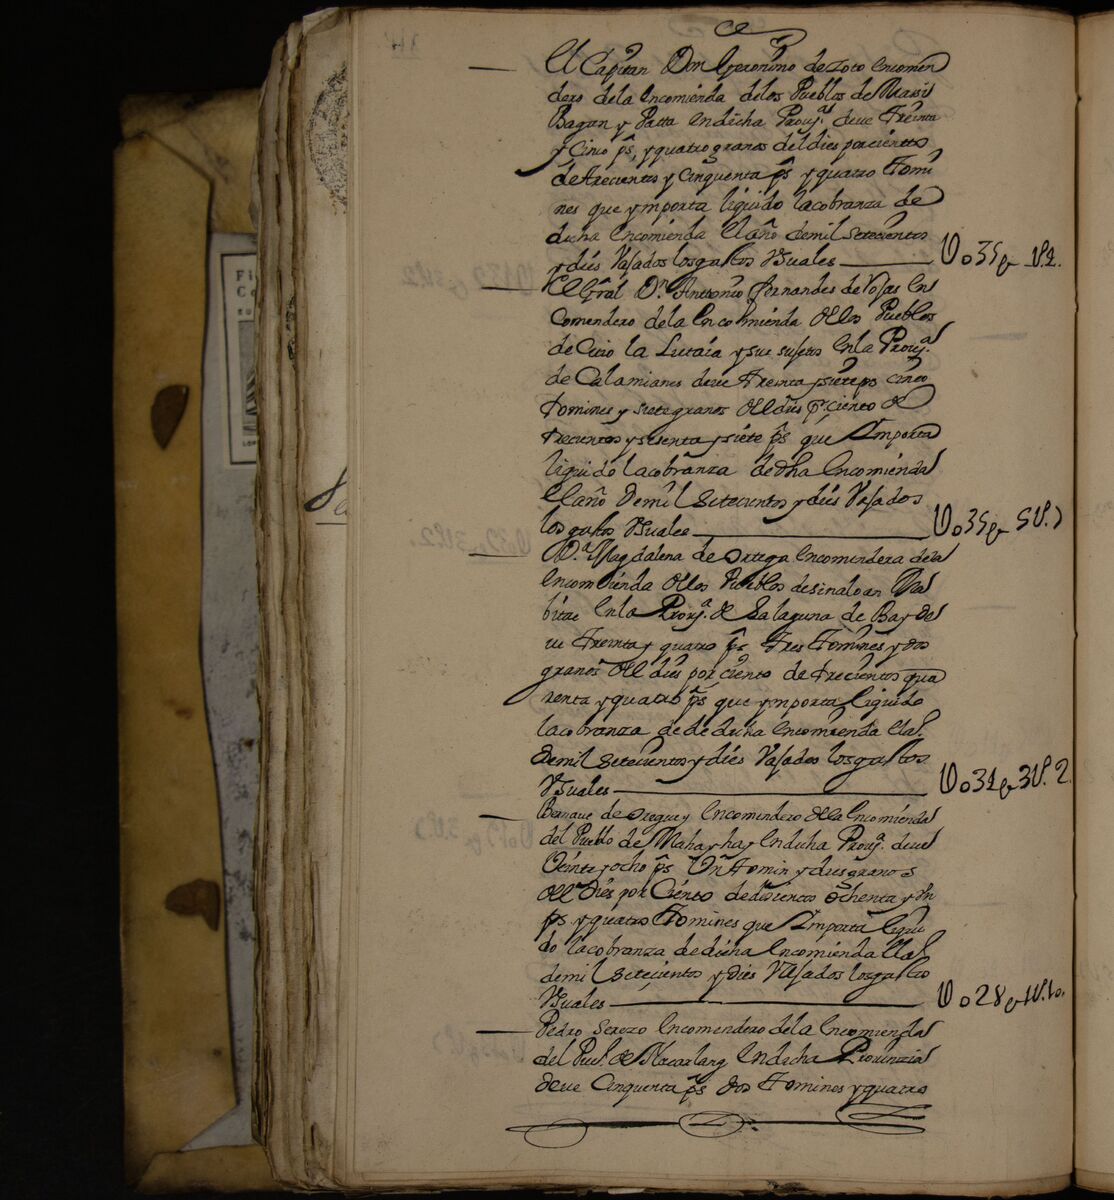 El Capitan Don Geronimo de Zoto encomen
dero de la encomienda de los Pueblos de Massi
Bagan y Patta en dicha Prov.ª deve treinta
y Cinco ps, y quatro granos del dies por ciento
de trecientos y cinquenta ps y quatro Tomi
nes que ymporta liquido la cobranza de
dicha encomienda el año de mil setecientos
y dies Vajados los gastos Vsuales U035p U4.
El Gral Dn. Antonio fernandes de Roxas en
comendero de la encomienda de los Pueblos
de Cuio la Lutaia y sus sujetos en la Prov.ª
de Calamianes deve treinta y siete ps cinco
tomines y siete granos del dies pr. ciento de
trecientos y sesenta y siete ps que Importa
liquido la cobranza de dha encomienda
el año de mil setecientos y dies Vajados
los gastos Vsuales U035p 5U.7
D.ª Magdalena de Ortega encomendera de la
encomienda de los Pueblos de sinaloan
en la Prov.ª de La laguna de Bay de
ve treinta y quatro ps tres tomines y dos
granos del dies por ciento de trecientos qua
renta y quatro ps que ymporta liquido
la cobranza de de dicha encomienda el a.º
de mil setecientos y dies Vajados los gastos
Vsuales U034p 3U.2.
de Oreguey encomendero de la encomienda
del Pueblo de Mahayhay en dicha Prov.ª deve
Veinte y ocho ps Vn tomin y dies granos
del Dies por Ciento de dosientos ochenta y Vn
ps y quatro tomines que Importa liqui
do la cobranza de dicha encomienda el a.º
de mil setecientos y dies Vajados los gasto
Vsuales U028p 1U.10.
Pedro Serezo encomendero de la encomienda
del Pue.º de en dicha Provinzia
deve Cinquenta ps dos tomines y quatro